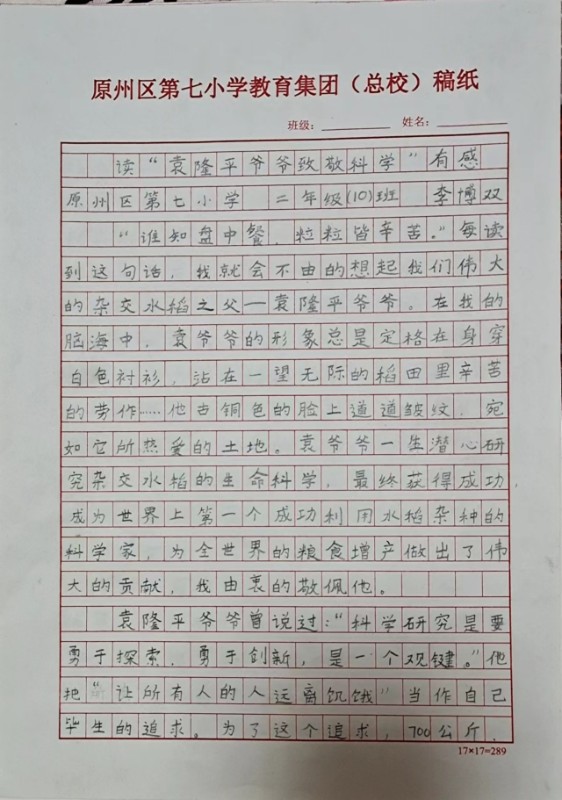 原州区第七小学教育集团（总校）稿纸
班级：________ 姓名：________
读“袁隆平爷爷致敬科学”有感
原州区第七小学 二年级(10)班 李博双
“谁知盘中餐，粒粒皆辛苦。”每读
到这句话，我就会不由的想起我们伟大
的杂交水稻之父—袁隆平爷爷。在我的
脑海中，袁爷爷的形象总是定格在身穿
白色衬衫，站在一望无际的稻田里辛苦
的劳作……他古铜色的脸上道道皱纹，宛
如它所热爱的土地。袁爷爷一生潜心研
究杂交水稻的生命科学，最终获得成功，
成为世界上第一个成功利用水稻杂种的
科学家，为全世界的粮食增产做出了伟
大的贡献，我由衷的敬佩他。
袁隆平爷爷曾说过：“科学研究是要
勇于探索，勇于创新，是一个观键。”他
把“让所有人的人远离饥饿”当作自己
毕生的追求。为了这个追求，700公斤，
17×17=289